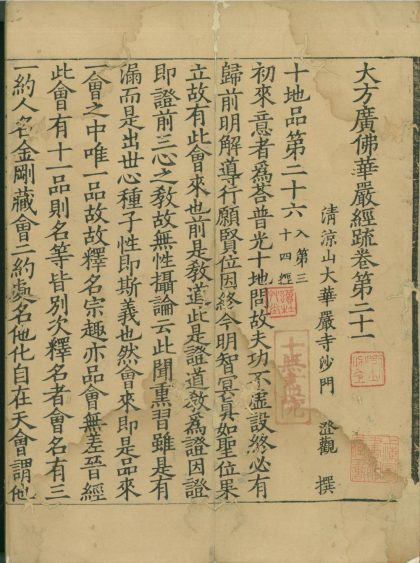 大方廣佛華嚴經疏卷第二十一
清涼山大華嚴寺沙門　澄觀　撰
十地品第二十六入第三十四經
初來意者為荅普光十地問故夫功不虛設終必有
歸前明解導行願賢位因終今明智冥真如聖位果
立故有此會來也前是教道此是證道教為證因證
即證前三心之教故無性攝論云此聞熏習雖是有
漏而是出世心種子性即斯義也然會來即是品來
一會之中唯一品故故釋名宗趣亦品會無差晉經
此會有十一品則名等皆別次釋名者會名有三
一約人名金剛藏會二約處名他化自在天會謂他